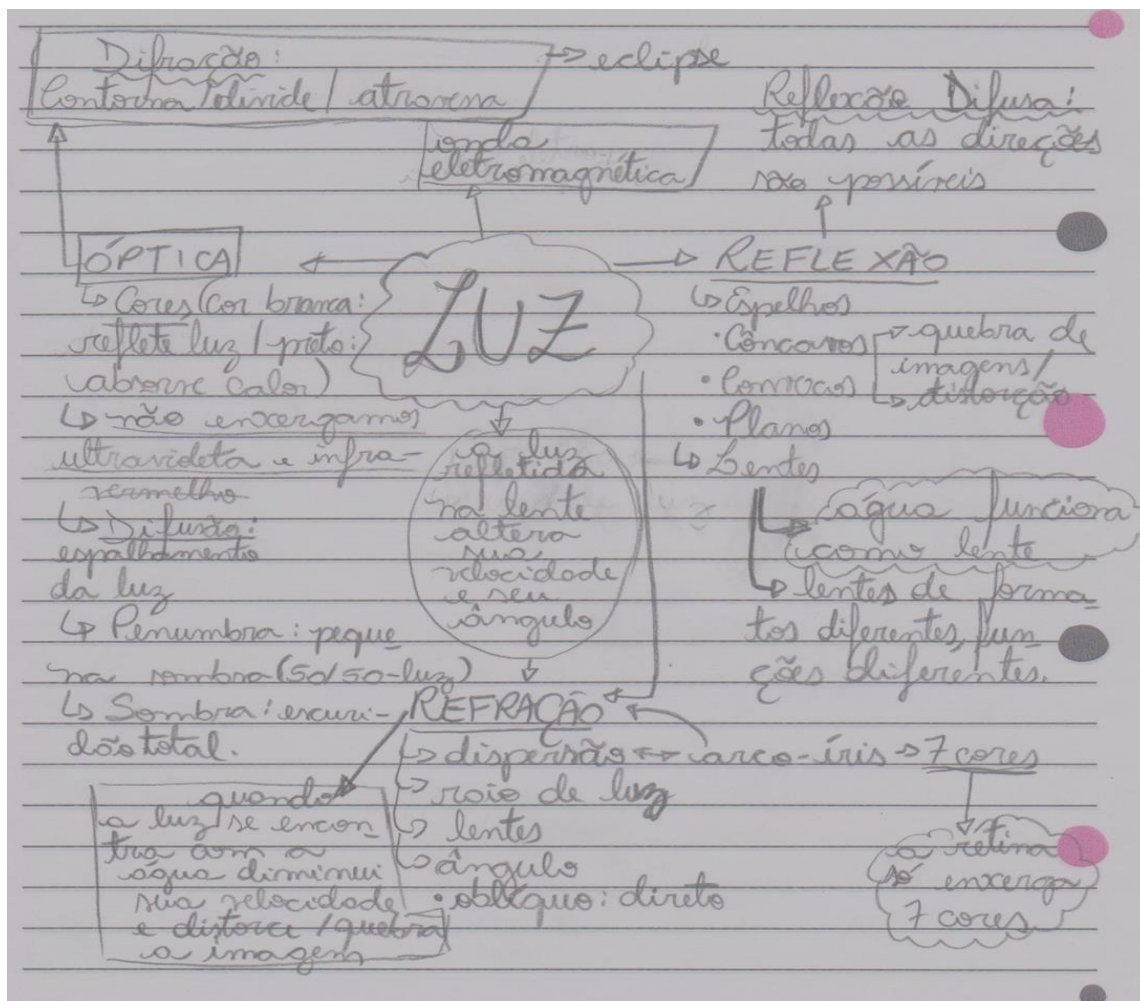 Difração:
Contorna/divide/ atravessa
→ eclipse
onda
eletromagnética
Reflexão Difusa:
todas as direções
são possíveis
ÓPTICA
LUZ
REFLEXÃO
↳ Cores (Cor branca:
reflete luz / preto:
absorve calor)
↳ não enxergamos
ultravioleta e infra-
vermelho
↳ Difusão:
espalhamento
da luz
↳ Penumbra: peque
na sombra (50/50-luz)
↳ Sombra: escuri-
dão total.
a luz
refletida
na lente
altera
sua
velocidade
e seu
ângulo
↳ Espelhos
• Côncavos
• Convexos
→ quebra de
imagens/
↳ distorção
• Planos
↳ Lentes
água funciona
como lente
↳ lentes de forma-
tos diferentes, fun-
ções diferentes.
REFRAÇÃO
↳ dispersão ↔ arco-íris → 7 cores
↳ raio de luz
↳ lentes
↳ ângulo
• oblíquo: direto
quando
a luz se encon-
tra com a
água diminui
sua velocidade
e distorce / quebra
a imagem
a retina
só enxerga
7 cores